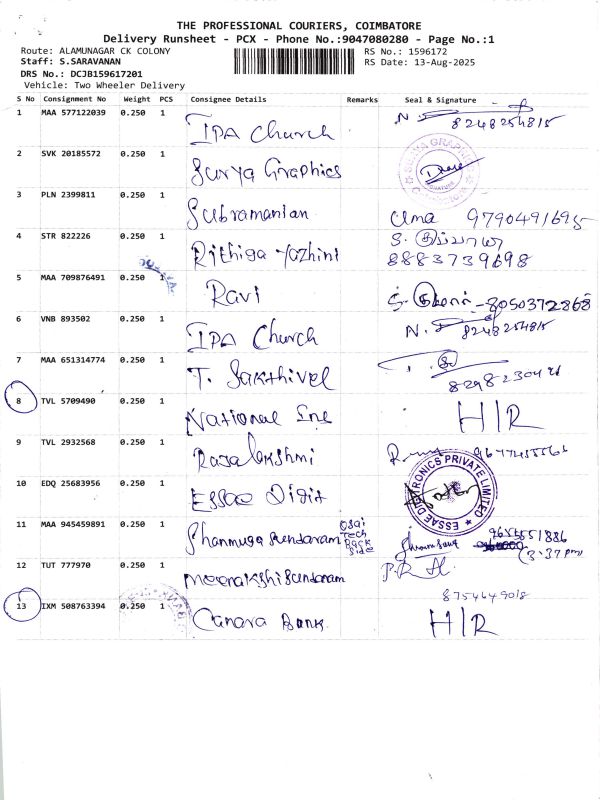 THE PROFESSIONAL COURIERS, COIMBATORE
Delivery Runsheet - PCX - Phone No.:9047080280 - Page No.:1
Route: ALAMUNAGAR CK COLONY RS No.: 1596172
Staff: S.SARAVANAN RS Date: 13-Aug-2025
DRS No.: DCJB159617201
Vehicle: Two Wheeler Delivery
S No Consignment No Weight PCS Consignee Details Remarks Seal & Signature
1 MAA 577122039 0.250 1 IPA Church N. 8248254815
2 SVK 20185572 0.250 1 Surya Graphics
3 PLN 2399811 0.250 1 Subramanian Uma 9790491695
4 STR 822226 0.250 1 Rithiga Yazhini 8883739698
5 MAA 709876491 0.250 1 Ravi 8050372868
6 VNB 893502 0.250 1 IPA Church N. 8248254815
7 MAA 651314774 0.250 1 T. Sakthivel
8 TVL 5709490 0.250 1 National Ine H/R
9 TVL 2932568 0.250 1 Rajalakshmi
10 EDQ 25683956 0.250 1 Essae Digit ESSAE PRIVATE LIMITED
11 MAA 945459891 0.250 1 Shanmuga Sundaram Osai Tech Back Side 9655551886
(3:37 pm)
12 TUT 777970 0.250 1 Meenakshi Sundaram
8754649018
13 IXM 508763394 0.250 1 Canara Bank H/R